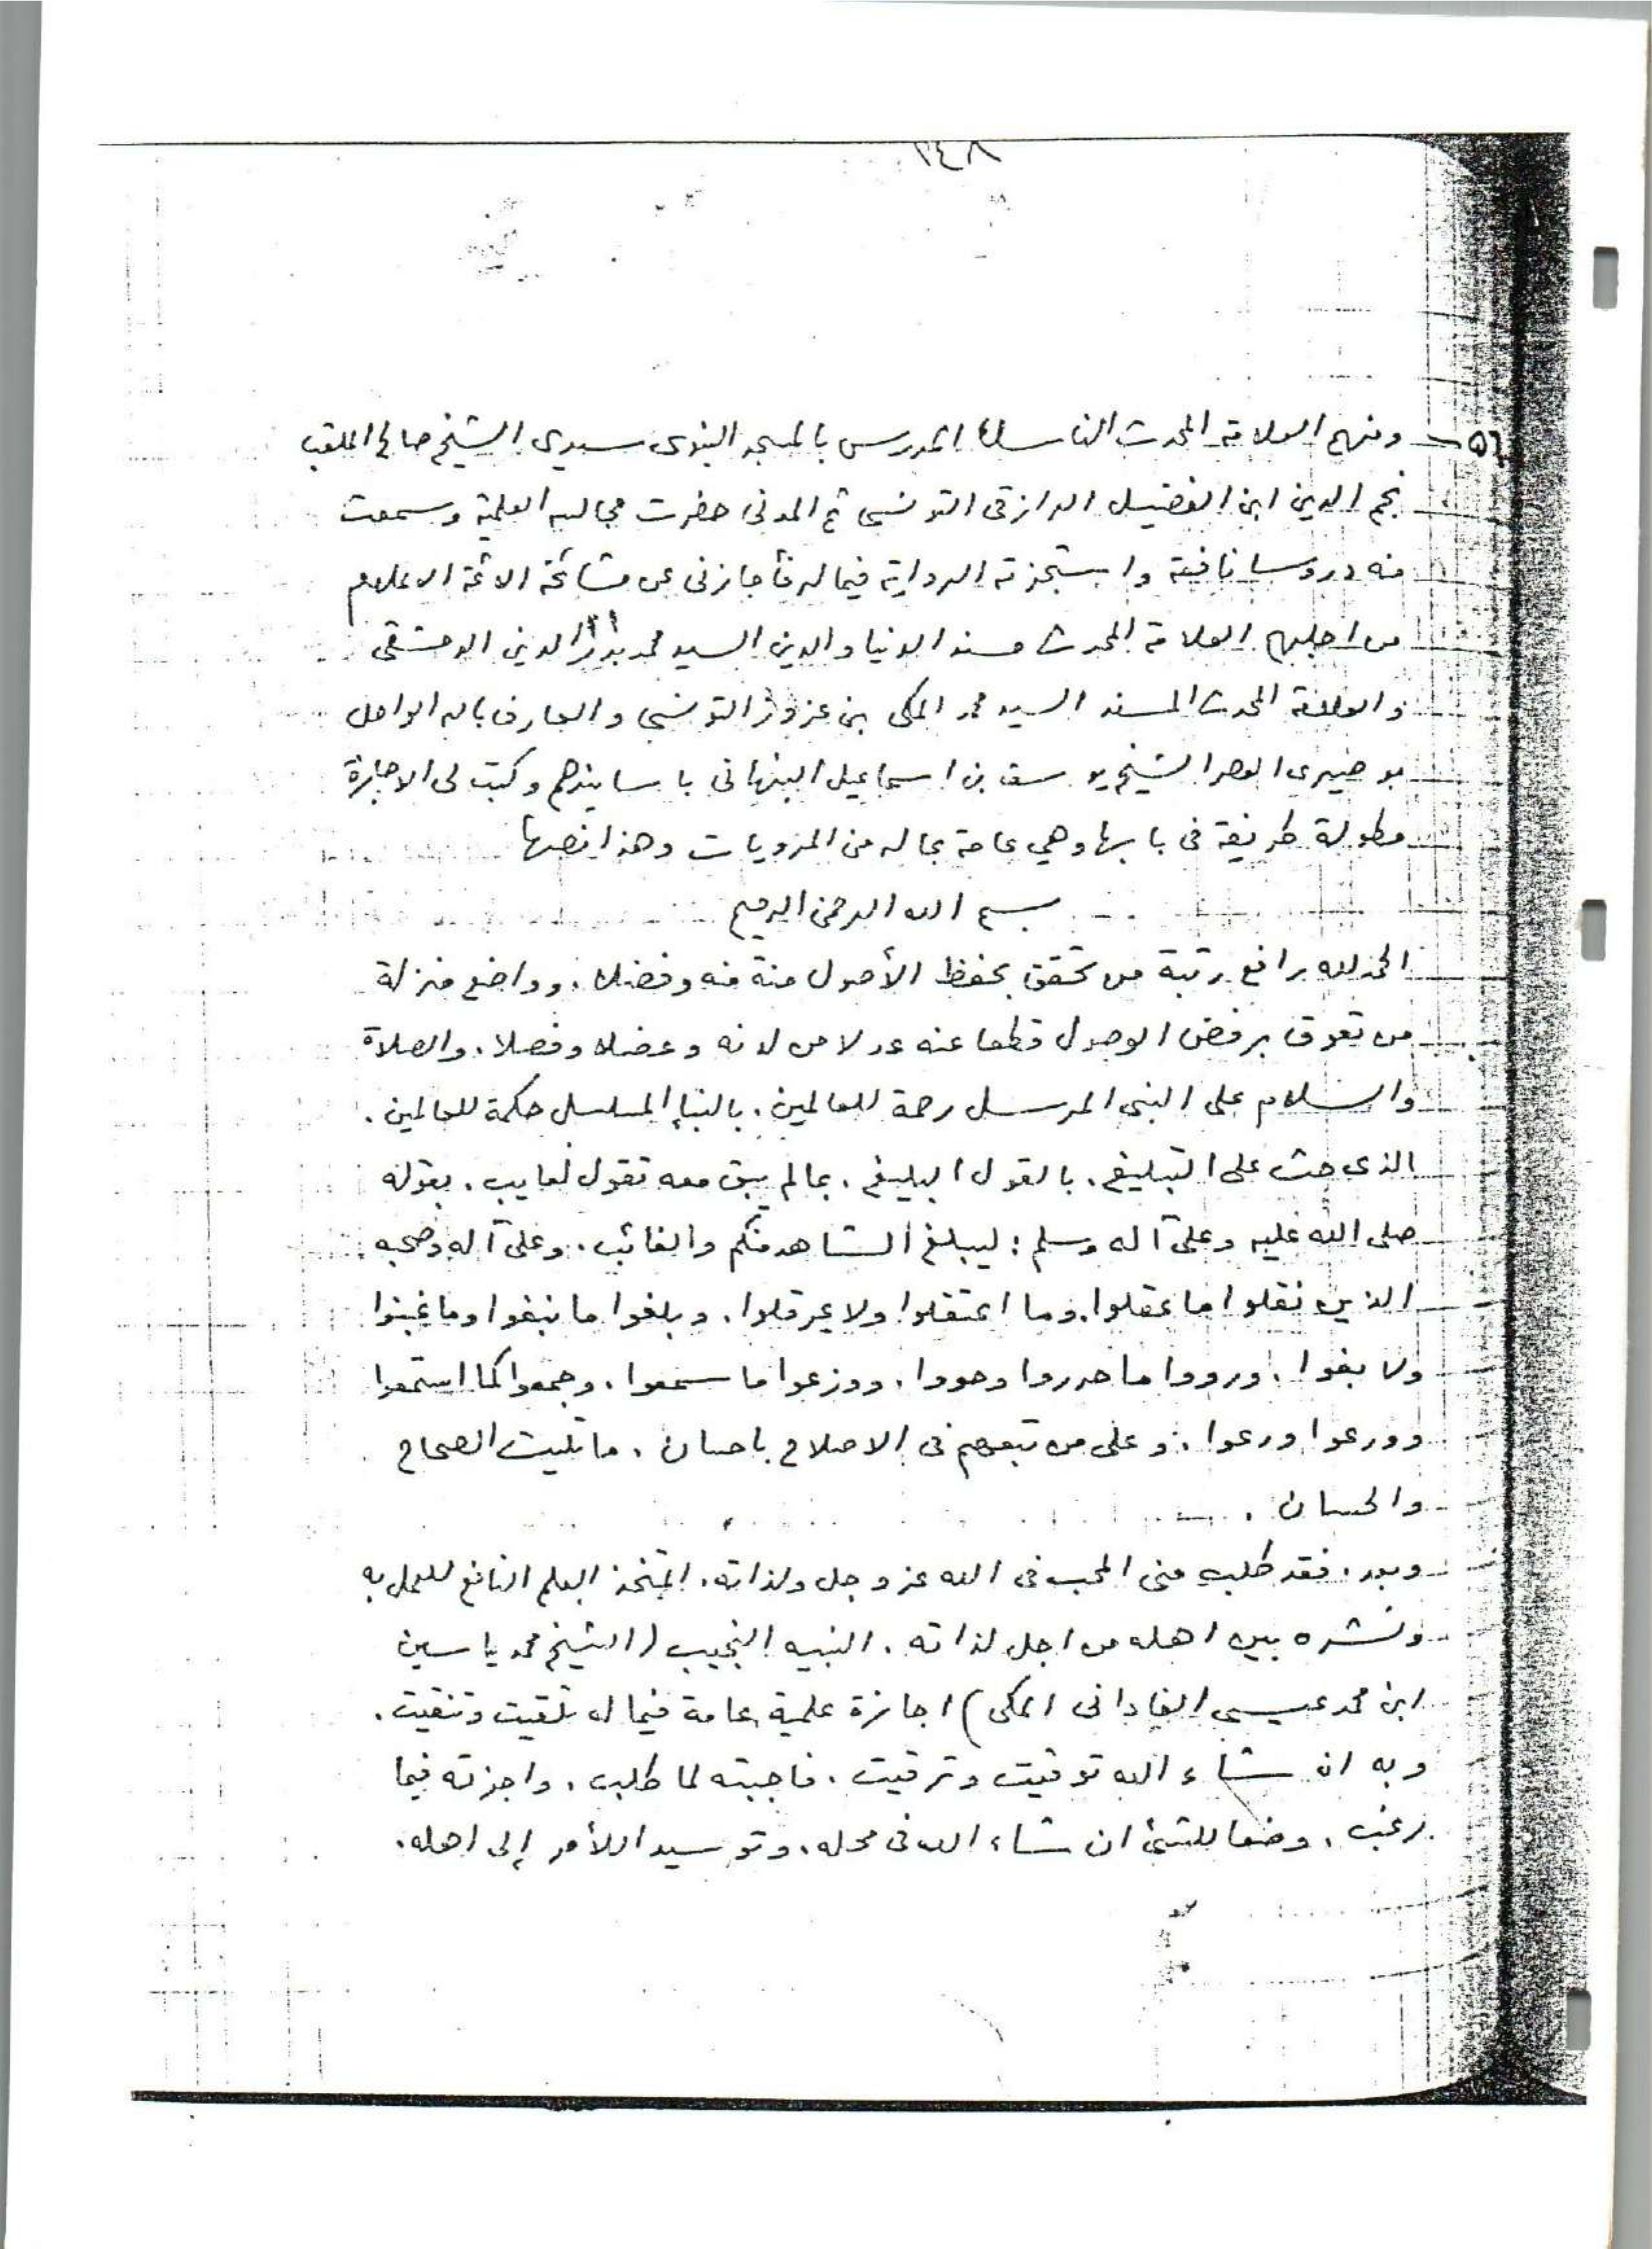 ٢٤٨
٥٦ - ومنهم العلامة المحدث الناسك المدرس بالمسجد النبوي سيدي الشيخ صالح الملقب
نجم الدين ابن الفضيل الرازقى التونسى ثم المدنى حضرت مجالسه العلمية وسمعت
منه دروسا نافعة واستجزته الرواية فيما له فأجازنى عن مشائخه الائمة الاعلام
من اجلهم العلامة المحدث مسند الدنيا والدين السيد محمد بدر الدين الدمشقى
والعلامة المحدث المسند السيد محمد المكى بن عزوز التونسى والعارف بالله الواصل
بوصيرى العصر الشيخ يوسف بن اسماعيل النبهانى باسانيدهم وكتب لى الاجازة
مطولة ظريفة فى بابها وهي عامة بماله من المرويات وهذا نصها
بسم الله الرحمن الرحيم
الحمد لله رافع رتبة من تحقق بحفظ الأصول منة منه وفضلا. وواضع منزلة
من تعوق برفض الوصول قطعا عنه عدلا من لدنه وعضلا وفصلا. والصلاة
والسلام على النبى المرسل رحمة للعالمين. بالنبإ المسلسل حكمة للعالمين.
الذى حث على التبليغ. بالقول البليغ. بما لم يبق معه تقول لعايب. بقوله
صلى الله عليه وعلى آله وسلم: ليبلغ الشاهد منكم والغائب. وعلى آله وصحبه
الذين نقلوا ما عقلوا. وما اعتقلوا ولا عرقلوا. وبلغوا ما نبغوا وما غبنوا
ولا بغوا. ورووا ما حرروا وحووا. ووزعوا ما سمعوا. وجمعوا كما استمعوا
وورعوا ورعوا. وعلى من تبعهم فى الاصلاح باحسان. ما تليت الصحاح
والحسان.
وبعد. فقد طلب منى المحب فى الله عز وجل ولذاته. المتخذ العلم النافع للعمل به
ونشره بين اهله من اجل لذاته. النبيه النجيب (الشيخ محمد ياسين
ابن محمد عيسى الفادانى المكى) اجازة علمية عامة فيما له تلقيت وتنقيت.
وبه ان شاء الله توقيت وترقيت. فاجبته لما طلب. واجزته فيما
رغب. وضعا للشئ ان شاء الله فى محله. وتوسيدا للأمر إلى اهله.